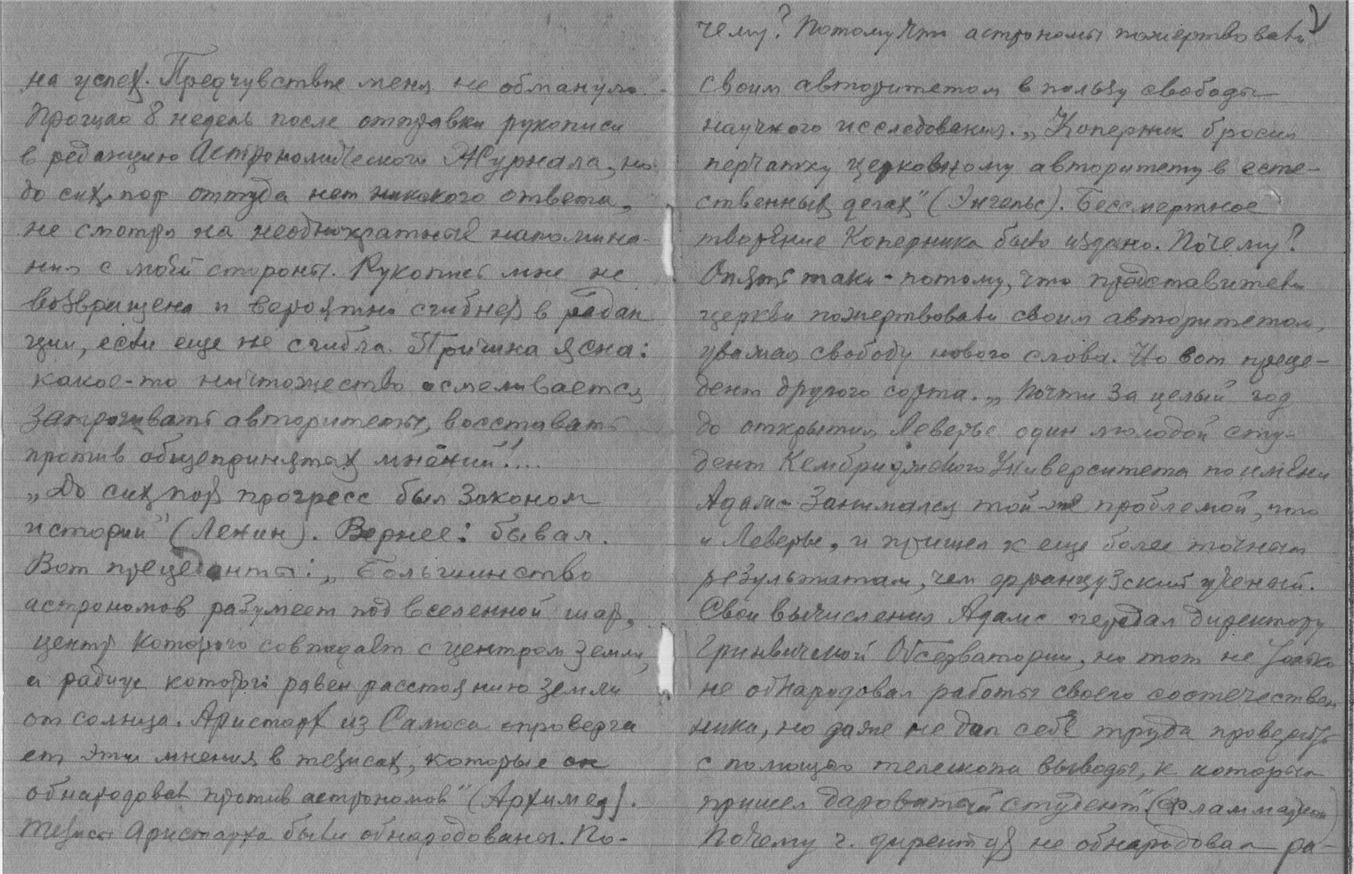 на успех. Предчувствие меня не обмануло.
Прошло 8 недель после отправки рукописи
в редакцию Астрономического Журнала, но
до сих пор оттуда нет никакого ответа,
не смотря на неоднократные напомина-
ния с моей стороны. Рукопись мне не
возвращена и вероятно сгибнет в редак
ции, если еще не сгибла. Причина ясна:
какое-то ничтожество осмеливается
затрогивать авторитеты, восставать
против общепринятых мнений!...
„До сих пор прогресс был законом
истории" (Ленин). Вернее: бывал.
Вот прецеденты: „Большинство
астрономов разумеет под вселенной шар,
центр которого совпадает с центром земли,
а радиус которого равен расстоянию земли
от солнца. Аристарх из Самоса опроверга
ет эти мнения в тезисах, которые он
обнародовал против астрономов" (Архимед).
Тезисы Аристарха были обнародованы. По-
2
чему? Потому что астрономы пожертвовали
своим авторитетом в пользу свободы
научного исследования. „Коперник бросил
перчатку церковному авторитету в есте-
ственных делах" (Энгельс). Бессмертное
творение Коперника было издано. Почему?
Опять таки - потому, что представители
церкви пожертвовали своим авторитетом,
уважая свободу нового слова. Но вот преце-
дент другого сорта. „Почти за целый год
до открытия Леверье один молодой сту-
дент Кембриджского Университета по имени
Адамс занимался той же проблемой, что
и Леверье, и пришел к еще более точным
результатам, чем французский ученый.
Свои вычисления Адамс передал директору
Гринвичской Обсерватории, но тот не только
не обнародовал работы своего соотечествен
ника, но даже не дал себе труда проверить
с помощью телескопа выводы, к которым
пришел даровитый студент" (Фламмарион)
Почему г. директор не обнародовал ра-